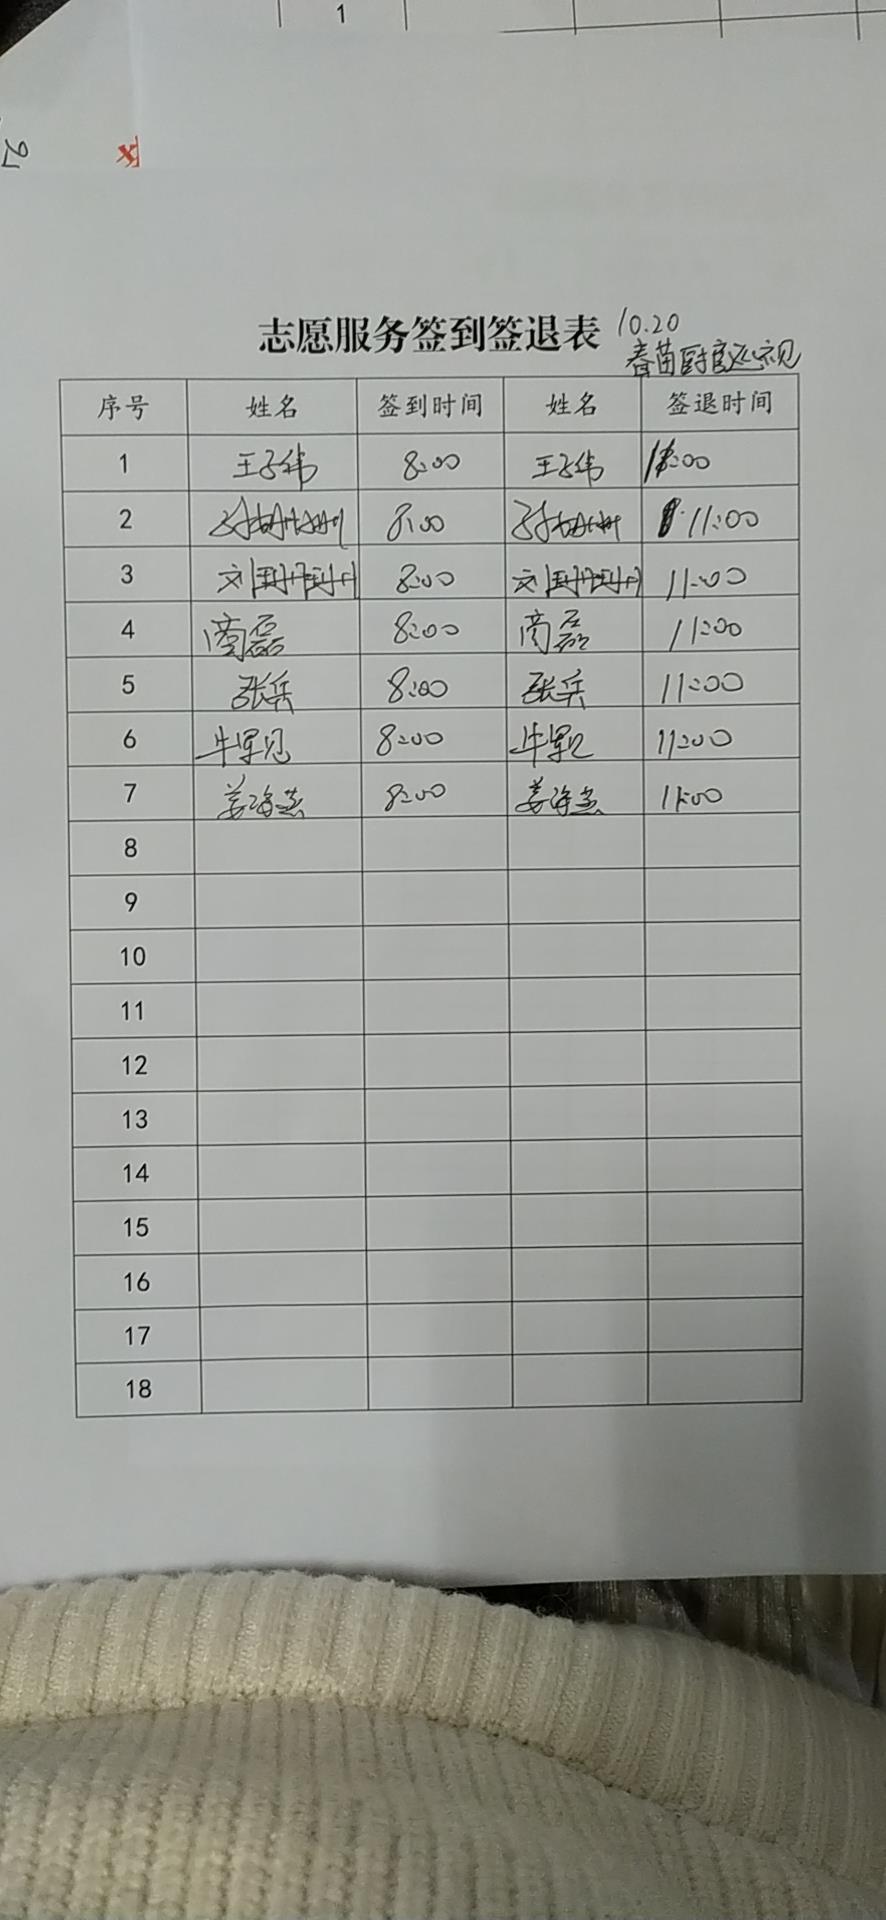 1
2
志愿服务签到签退表 10.20
春苗 巡视
序号 姓名 签到时间 姓名 签退时间
1 王子纬 8:00 王子纬 11:00
2 8:00 11:00
3 刘珊珊 8:00 刘珊珊 11:00
4 商磊 8:00 商磊 11:00
5 张兵 8:00 张兵 11:00
6 8:00 11:00
7 姜海燕 8:00 姜海燕 11:00
8
9
10
11
12
13
14
15
16
17
18